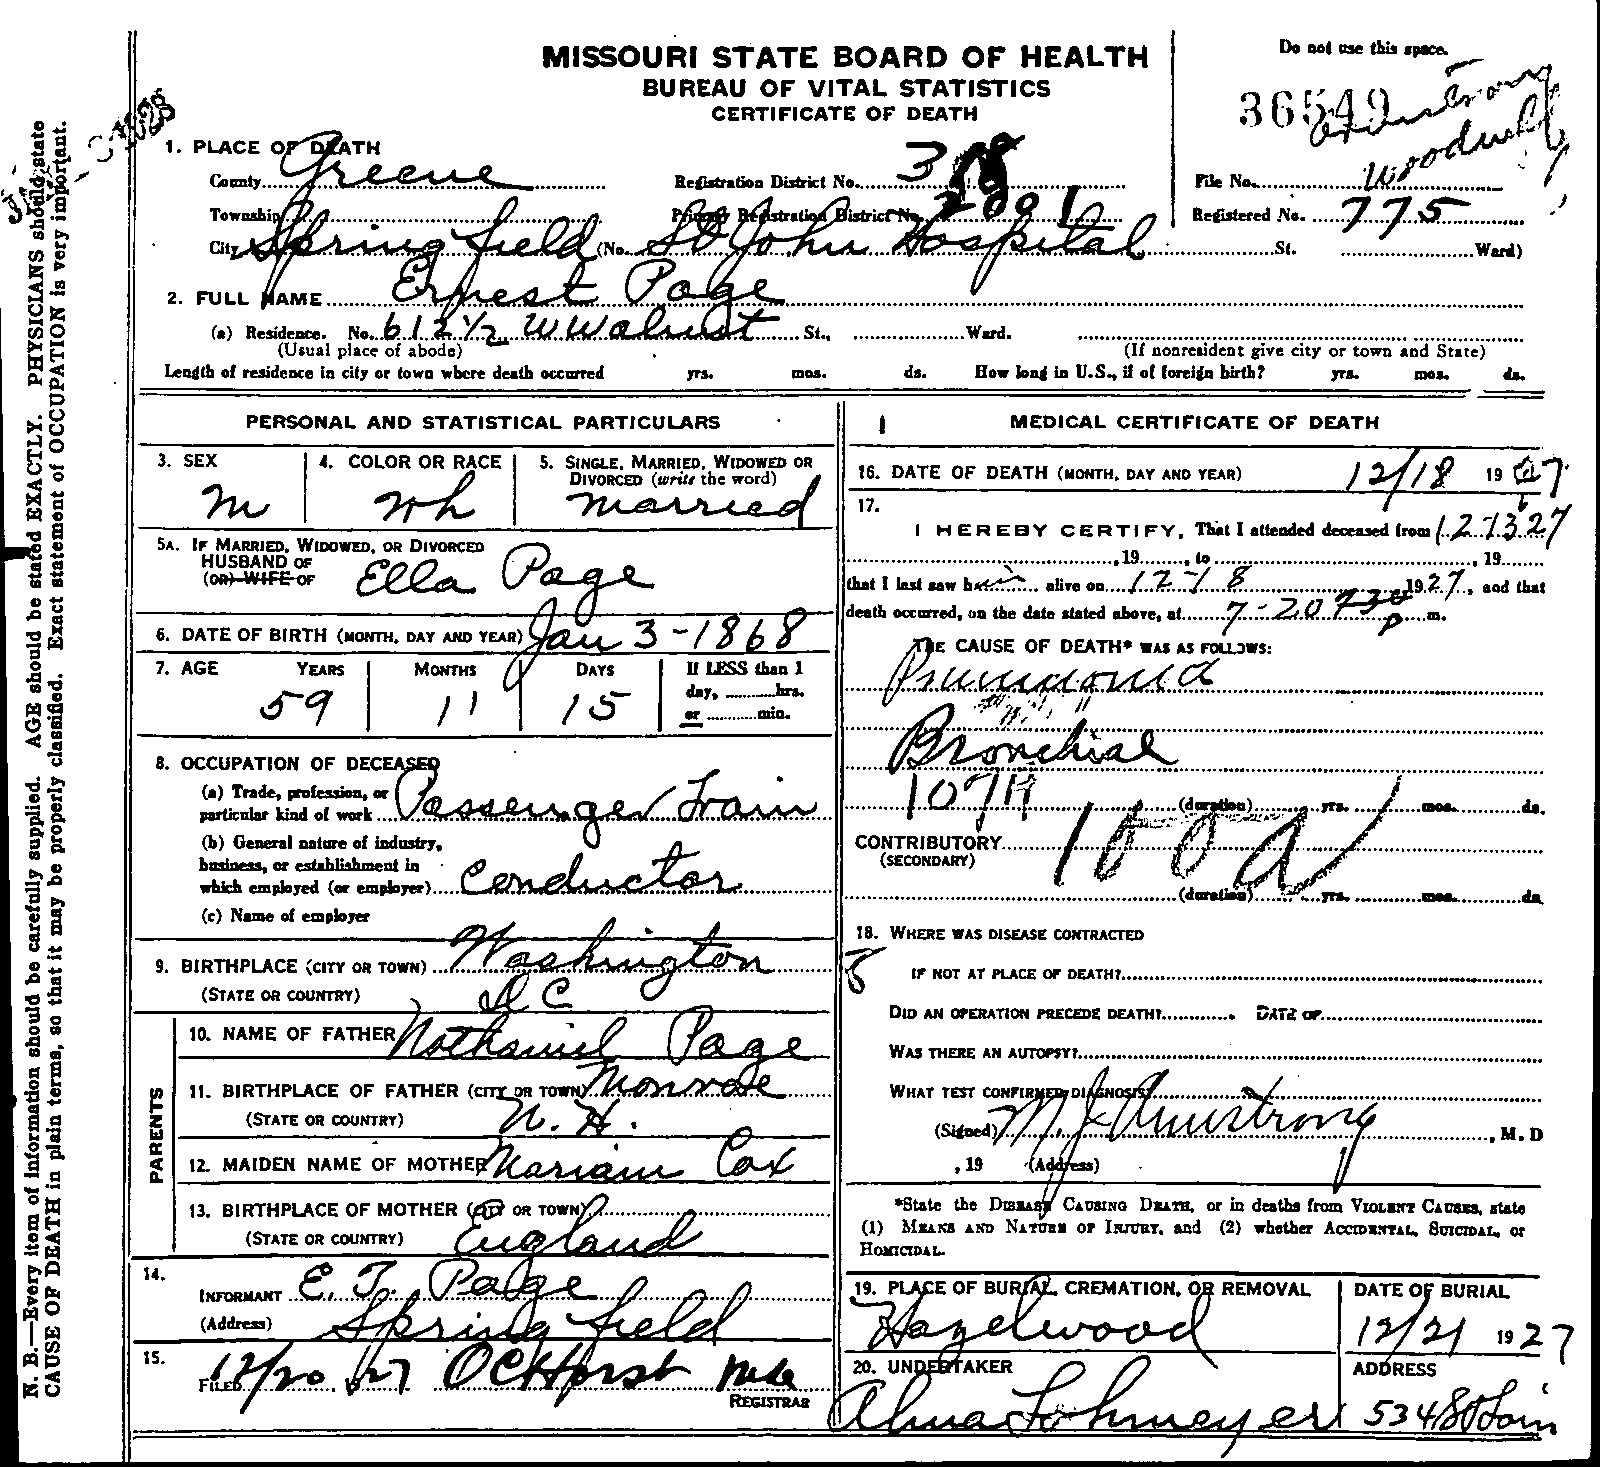 MISSOURI STATE BOARD OF HEALTH
BUREAU OF VITAL STATISTICS
CERTIFICATE OF DEATH
Do not use this space.
36549
Armstrong
Woodruff
1. PLACE OF DEATH
County Greene
Registration District No. 318
File No.
Township
Primary Registration District No. 2001
Registered No. 775
City Springfield (No. St John Hospital St. Ward)
2. FULL NAME Ernest Page
(a) Residence. No. 612 1/2 W Walnut St., Ward.
(Usual place of abode) (If nonresident give city or town and State)
Length of residence in city or town where death occurred yrs. mos. ds. How long in U.S., if of foreign birth? yrs. mos. ds.
PERSONAL AND STATISTICAL PARTICULARS
3. SEX M
4. COLOR OR RACE Wh
5. SINGLE, MARRIED, WIDOWED OR DIVORCED (write the word) Married
5A. IF MARRIED, WIDOWED, OR DIVORCED
HUSBAND OF
(OR) WIFE OF Ella Page
6. DATE OF BIRTH (MONTH, DAY AND YEAR) Jan 3-1868
7. AGE YEARS MONTHS DAYS If LESS than 1
day, hrs.
or min.
59 11 15
8. OCCUPATION OF DECEASED
(a) Trade, profession, or
particular kind of work Passenger Train
(b) General nature of industry,
business, or establishment in
which employed (or employer) Conductor
(c) Name of employer
9. BIRTHPLACE (CITY OR TOWN) Washington
(STATE OR COUNTRY) D C
PARENTS
10. NAME OF FATHER Nathaniel Page
11. BIRTHPLACE OF FATHER (CITY OR TOWN) Monroe
(STATE OR COUNTRY) N. H.
12. MAIDEN NAME OF MOTHER Mariam Cox
13. BIRTHPLACE OF MOTHER (CITY OR TOWN)
(STATE OR COUNTRY) England
14.
INFORMANT E. T. Page
(Address) Springfield
15.
FILED 12/20, 27 O C Horst
REGISTRAR
MEDICAL CERTIFICATE OF DEATH
16. DATE OF DEATH (MONTH, DAY AND YEAR) 12/18 1927
17.
I HEREBY CERTIFY, That I attended deceased from 12-13 27
, 19 , to , 19
that I last saw him alive on 12-18 1927, and that
death occurred, on the date stated above, at 7-20 730 p m.
THE CAUSE OF DEATH* WAS AS FOLLOWS:
Pneumonia
Bronchial
107A
(duration) yrs. mos. ds.
CONTRIBUTORY
(SECONDARY)
100a
(duration) yrs. mos. ds.
18. WHERE WAS DISEASE CONTRACTED
IF NOT AT PLACE OF DEATH?
DID AN OPERATION PRECEDE DEATH? DATE OF
WAS THERE AN AUTOPSY?
WHAT TEST CONFIRMED DIAGNOSIS?
(Signed) M. J. Armstrong, M. D
, 19 (Address)
*State the DISEASE CAUSING DEATH, or in deaths from VIOLENT CAUSES, state
(1) MEANS AND NATURE OF INJURY, and (2) whether ACCIDENTAL, SUICIDAL, or
HOMICIDAL.
19. PLACE OF BURIAL, CREMATION, OR REMOVAL
Hazelwood
DATE OF BURIAL
12/21 1927
20. UNDERTAKER
Alma Lohmeyer
ADDRESS
534 St Louis
N. B.—Every item of information should be carefully supplied. AGE should be stated EXACTLY. PHYSICIANS should state
CAUSE OF DEATH in plain terms, so that it may be properly classified. Exact statement of OCCUPATION is very important.